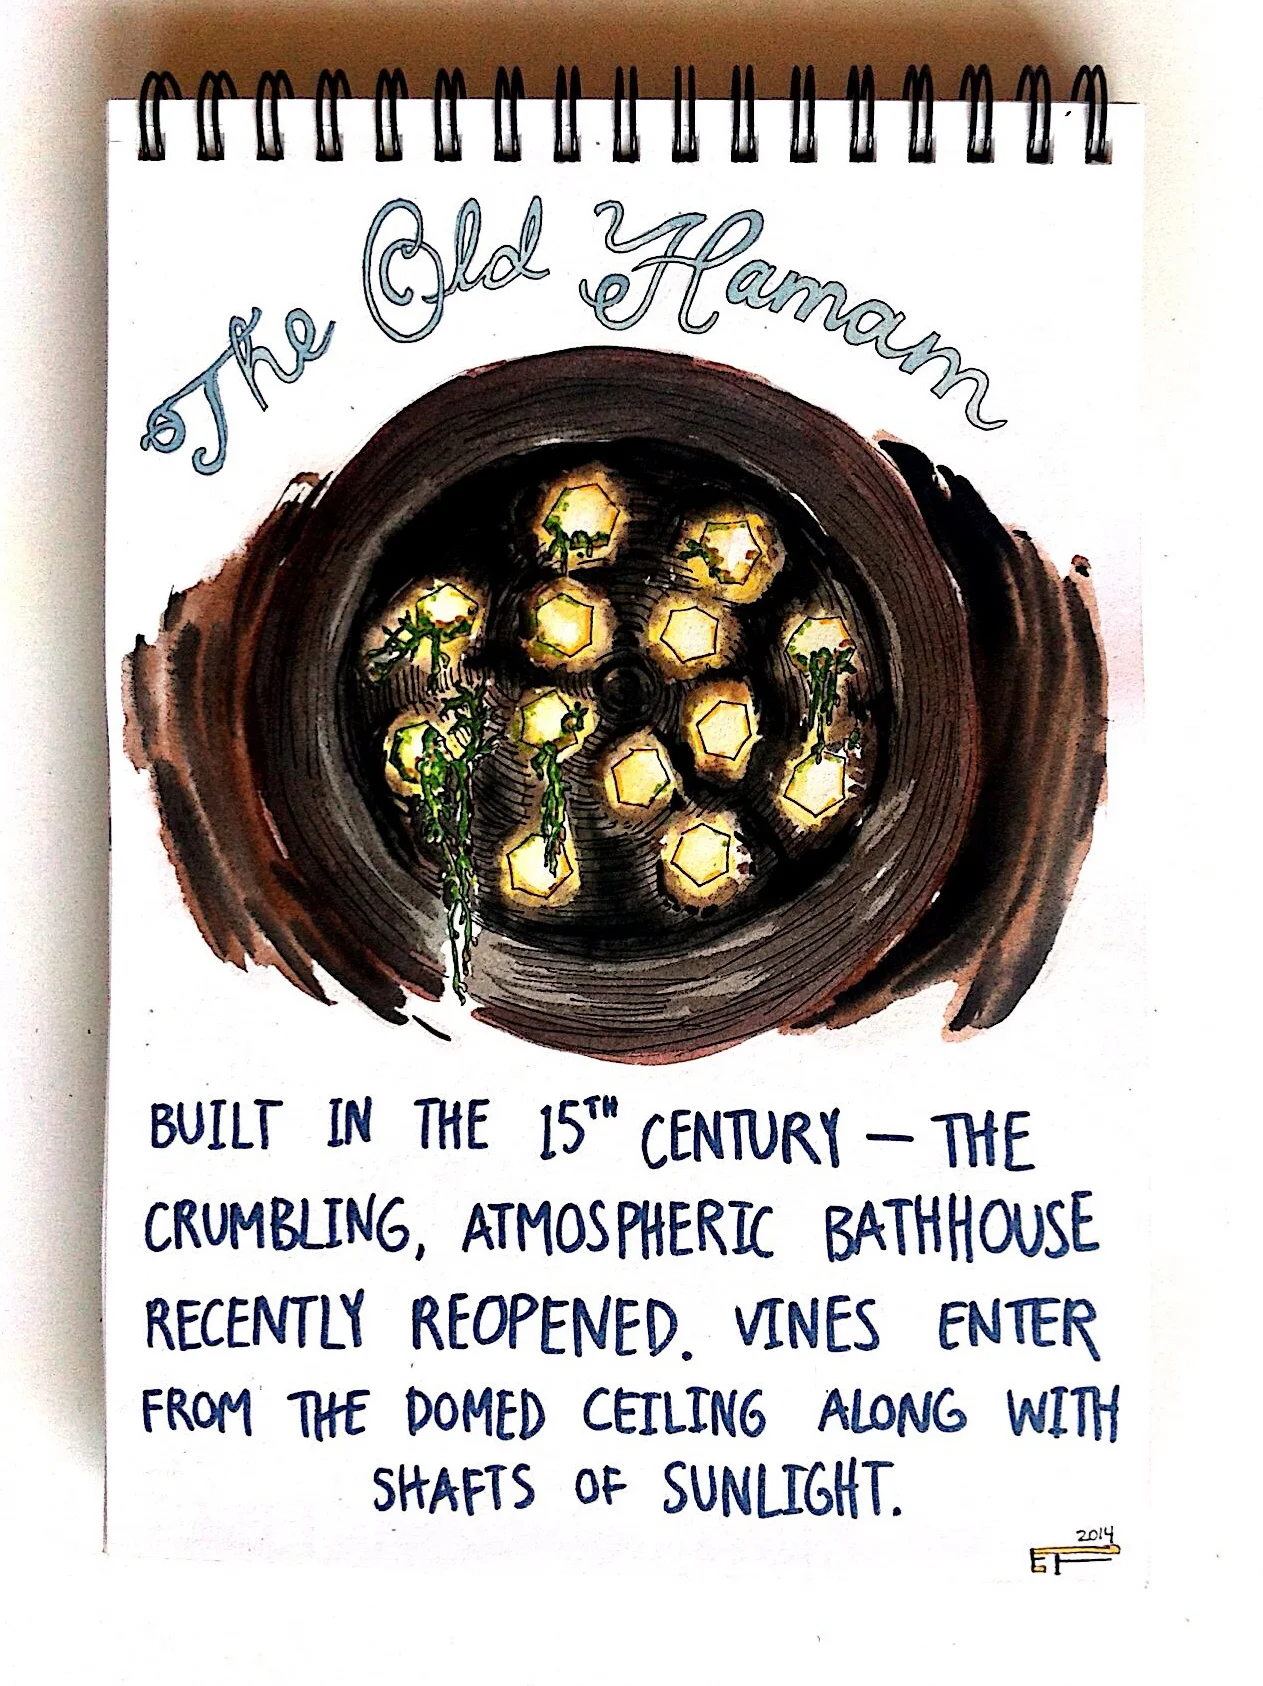 The Old Hamam
BUILT IN THE 15TH CENTURY – THE
CRUMBLING, ATMOSPHERIC BATHHOUSE
RECENTLY REOPENED. VINES ENTER
FROM THE DOMED CEILING ALONG WITH
SHAFTS OF SUNLIGHT.
2014
ET